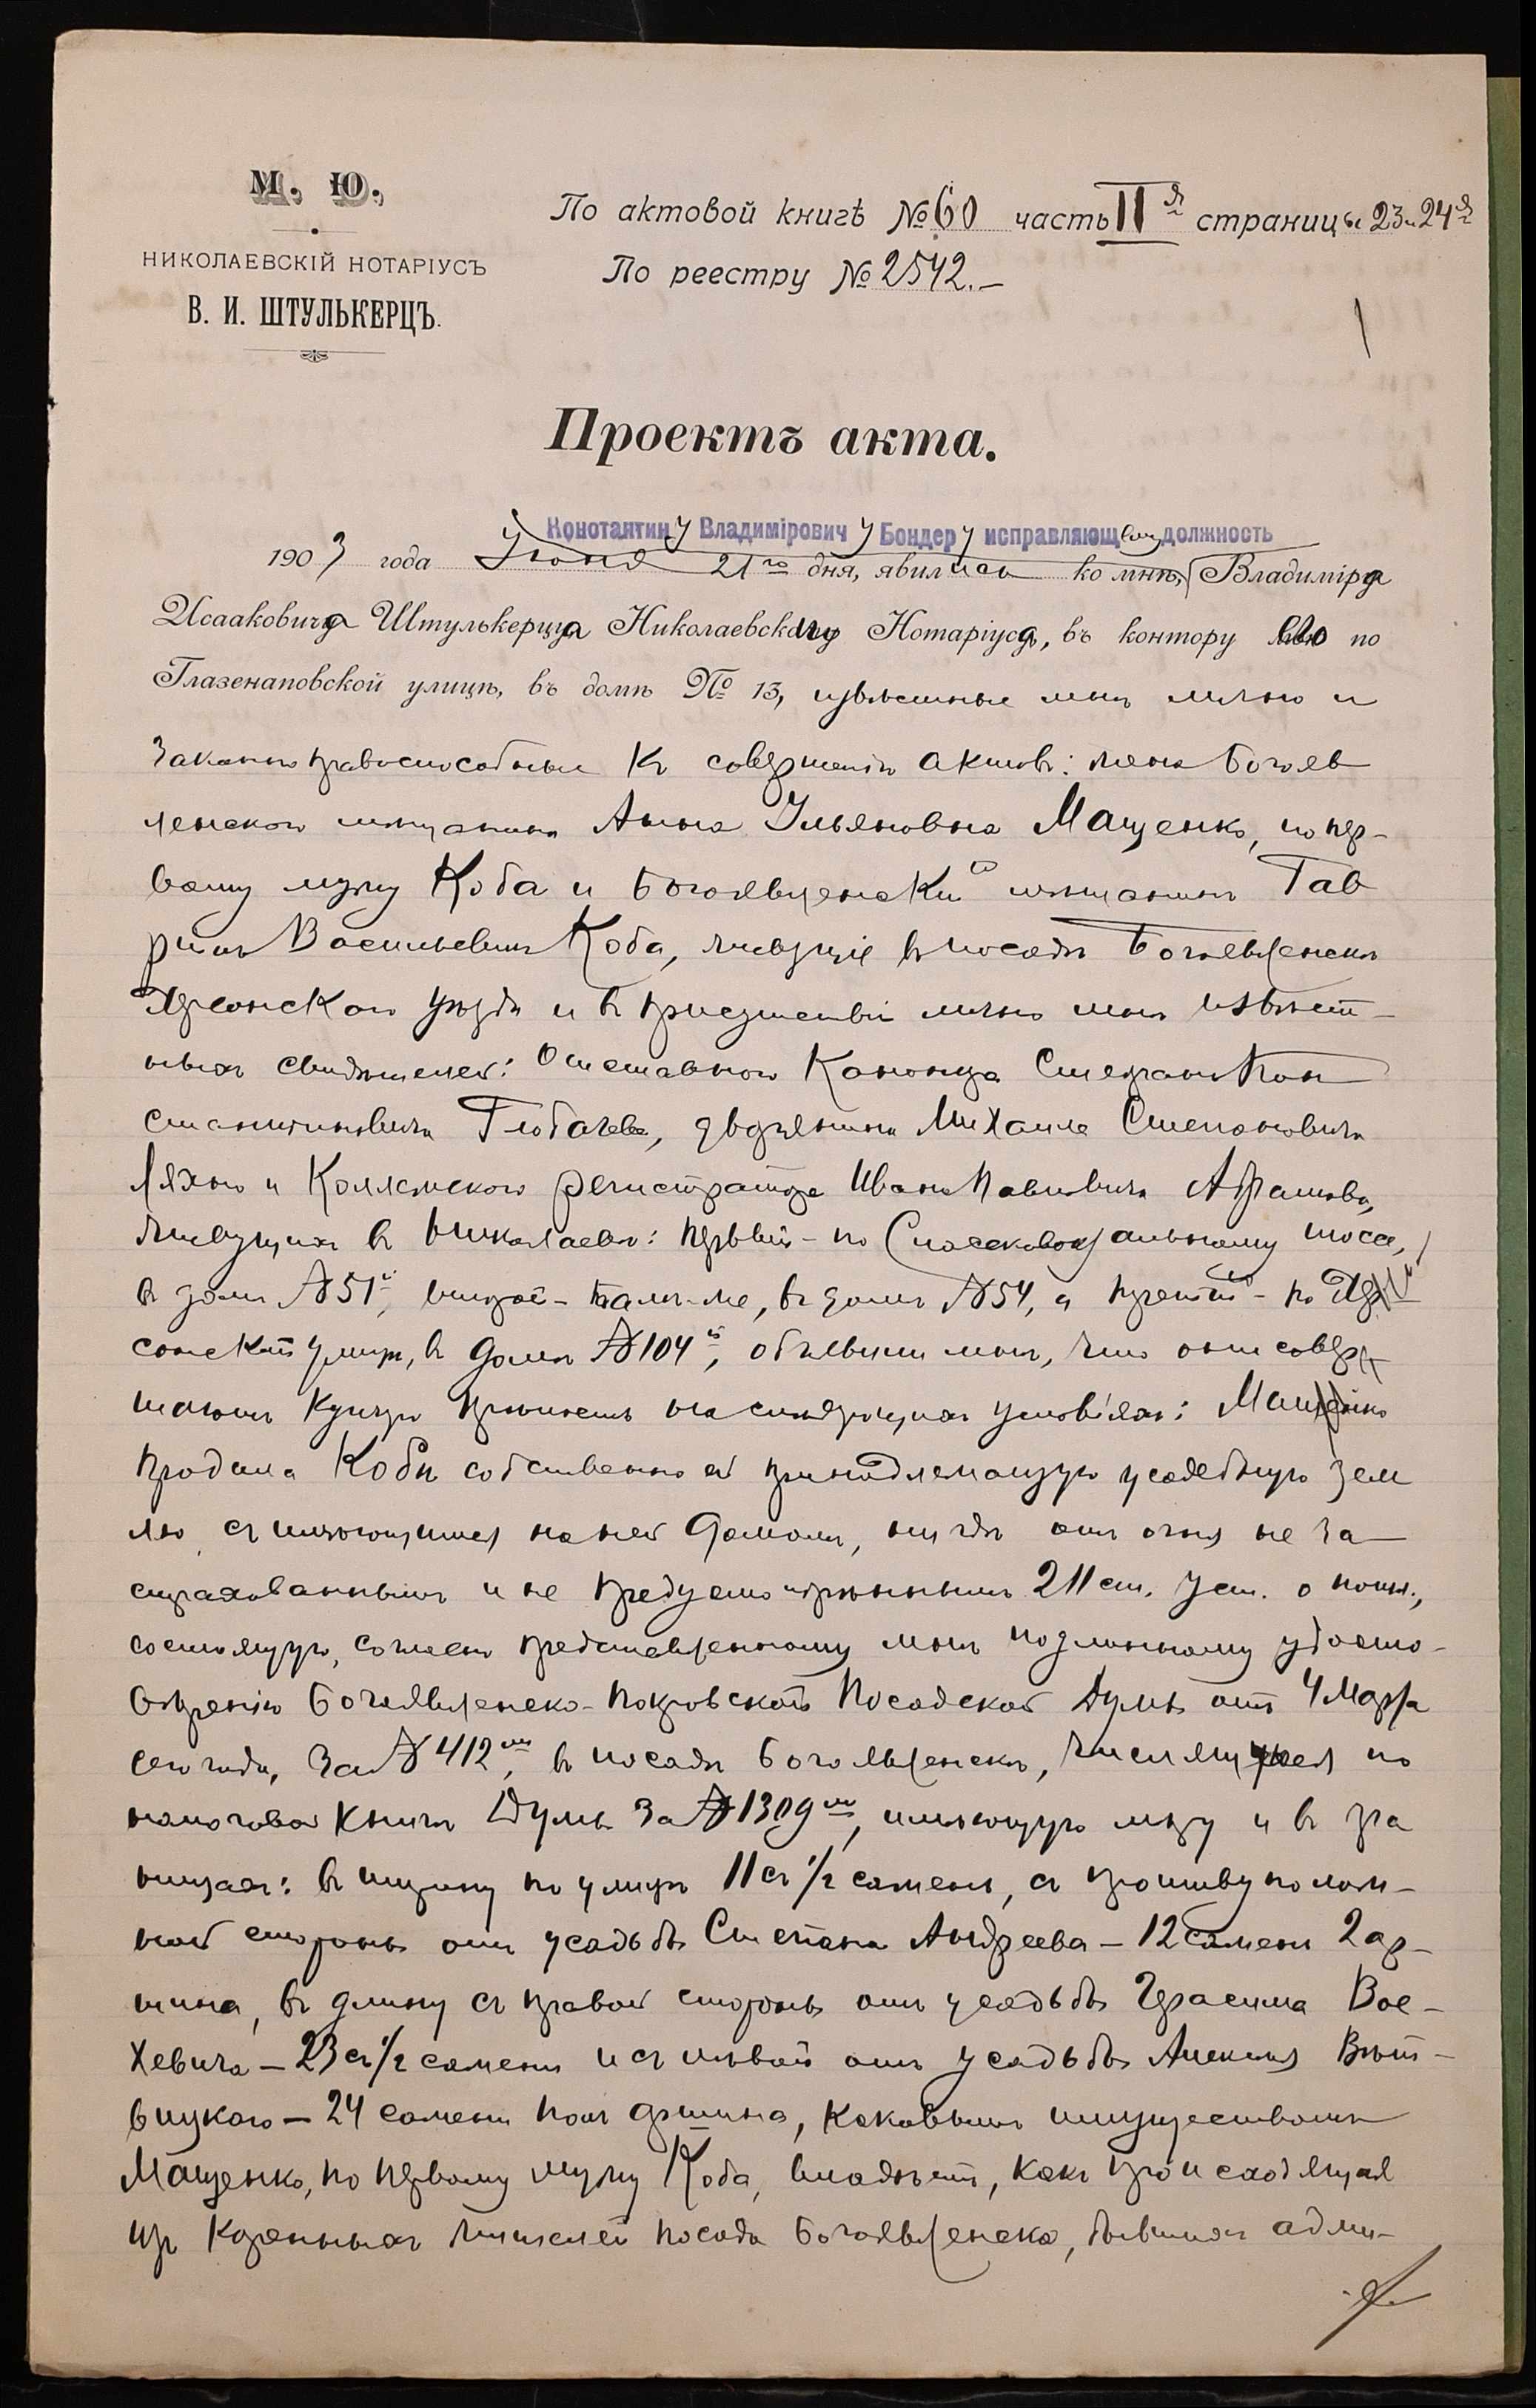 М. Ю.
НИКОЛАЕВСКІЙ НОТАРІУСЪ
В. И. ШТУЛЬКЕРЦЪ.
По актовой книгѣ № 60 часть II я страницы 23 и 24 я
По реестру № 2542.—
1
Проектъ акта.
Константину Владиміровичу Бондеру исправляющему должность
1903 года Іюня 21го дня, явились ко мнѣ, Владиміра
Исааковича Штулькерца Николаевскаго Нотаріуса, въ контору его по
Глазенаповской улицѣ, въ домѣ № 13, извѣстные мнѣ лично и
законно правоспособные къ совершенію актовъ: жена Богояв
ленскаго мѣщанина Анна Ульяновна Мащенко, по пер-
вому мужу Коба и Богоявленскій мѣщанинъ Гав
ріилъ Васильевичъ Коба, живущіе въ посадѣ Богоявленскѣ
Херсонскаго уѣзда и въ присутствіи лично мнѣ извѣст-
ныхъ свидѣтелей: Степанъ Кон
стантиновича Глобачева, дворянина Михаила Степановича
Ляхно и Коллежскаго регистратора Ивана Павловича Абрамова,
живущихъ въ Николаевѣ: первый - по Спасскому шоссе,
въ домѣ № 51й, второй - тамъ-же, въ домѣ № 54, а третій - по Хер
сонской улицѣ, въ домѣ № 104й, объявили мнѣ, что они совер
шаютъ купчую крѣпость на слѣдующихъ условіяхъ: Мащенко
продала Кобѣ собственно ей принадлежащую усадебную зем
лю съ имѣющимся на ней домомъ, нигдѣ отъ огня не за
страхованнымъ и не предусмотрѣннымъ 211 ст. Уст. о пошл.,
состоящую, согласно представленному мнѣ подлинному удосто-
вѣренію Богоявленско-Покровской Посадской Думы отъ 4 Марта
сего года, за № 412мъ, въ посадѣ Богоявленскѣ, числящуюся по
налоговой книгѣ Думы за № 1309мъ, имѣющую мѣру и въ гра
ницахъ: въ ширину по улицѣ 11 съ 1/2 сажень, съ противуполож-
ной стороны отъ усадьбы Степана Андреева - 12 сажень 2 ар-
шина, въ длину съ правой стороны отъ усадьбы Герасима Вос-
хевича - 23 съ 1/2 сажени и съ лѣвой отъ усадьбы Алексѣя Вѣт-
вицкаго - 24 сажени полъ аршина, каковымъ имуществомъ
Мащенко, по первому мужу Коба, владѣетъ, какъ происходящая
изъ коренныхъ жителей посада Богоявленска, бывшихъ адми-